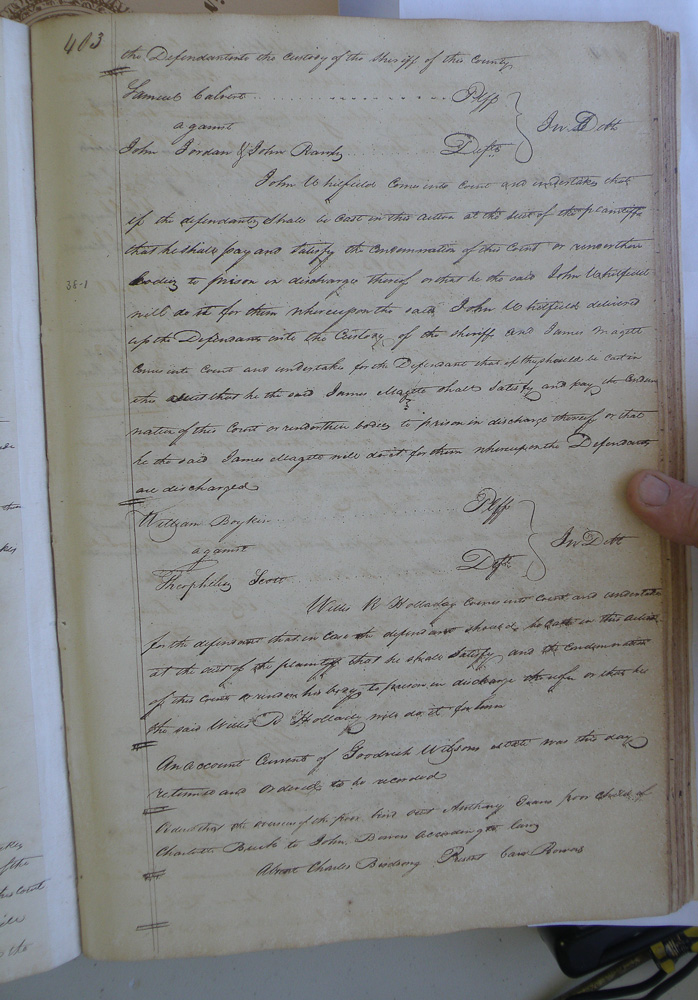 403
the Defendants into the Custody of the Sheriff of this County
Samuel Calvert Plff
against In Debt
John Jordan & John Dfts
John Whitfield Comes into Court and undertakes that
if the defendants shall be Cast in this action at the suit of the plaintiff
that he shall pay and satisfy the Condemnation of this Court or render their
38-1
bodies to prison in discharge thereof or that he the said John Whitfield
will do it for them whereupon the said John Whitfield delivered
up the Defendants into the Custody of the sheriff and James Magett
Comes into Court and undertakes for the Defendant that if they should be Cast in
this suit that he the said James Magett shall satisfy and pay the Condem
nation of this Court or render their bodies to prison in discharge thereof or that
he the said James Magett will do it for them whereupon the Defendants
are discharged
William Boykin Plff
against In Debt
Theophilus Scott Deft
Willis R Holladay Comes into Court and undertakes
for the defendant that in Case the defendant should be Cast in this action
at the suit of the plaintiff that he shall satisfy and the Condemnation
of this Court or render his body to prison in discharge thereof or that he
the said Willis R Hollady will do it for him
An account Current of Goodrich Wilsons estate was this day
returned and Ordered to be recorded
Ordered that the overseers of the poor bind out Anthony Evans poor child of
Charlotte Buck to John Bowers according to law
Absent Charles Birdsong Present Carr Bowers